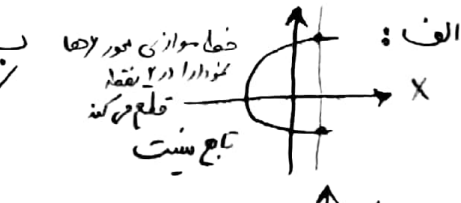 الف:
خط موازی محور yها
نمودار را در ۲ نقطه
قطع می کند
تابع نیست
X
ب